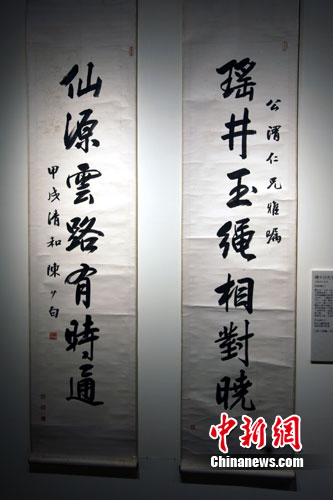 公渭仁兄雅嘱
瑶井玉繩相對曉
仙源雲路有時通
甲戌清和 陳少白
中新网
Chinanews.com